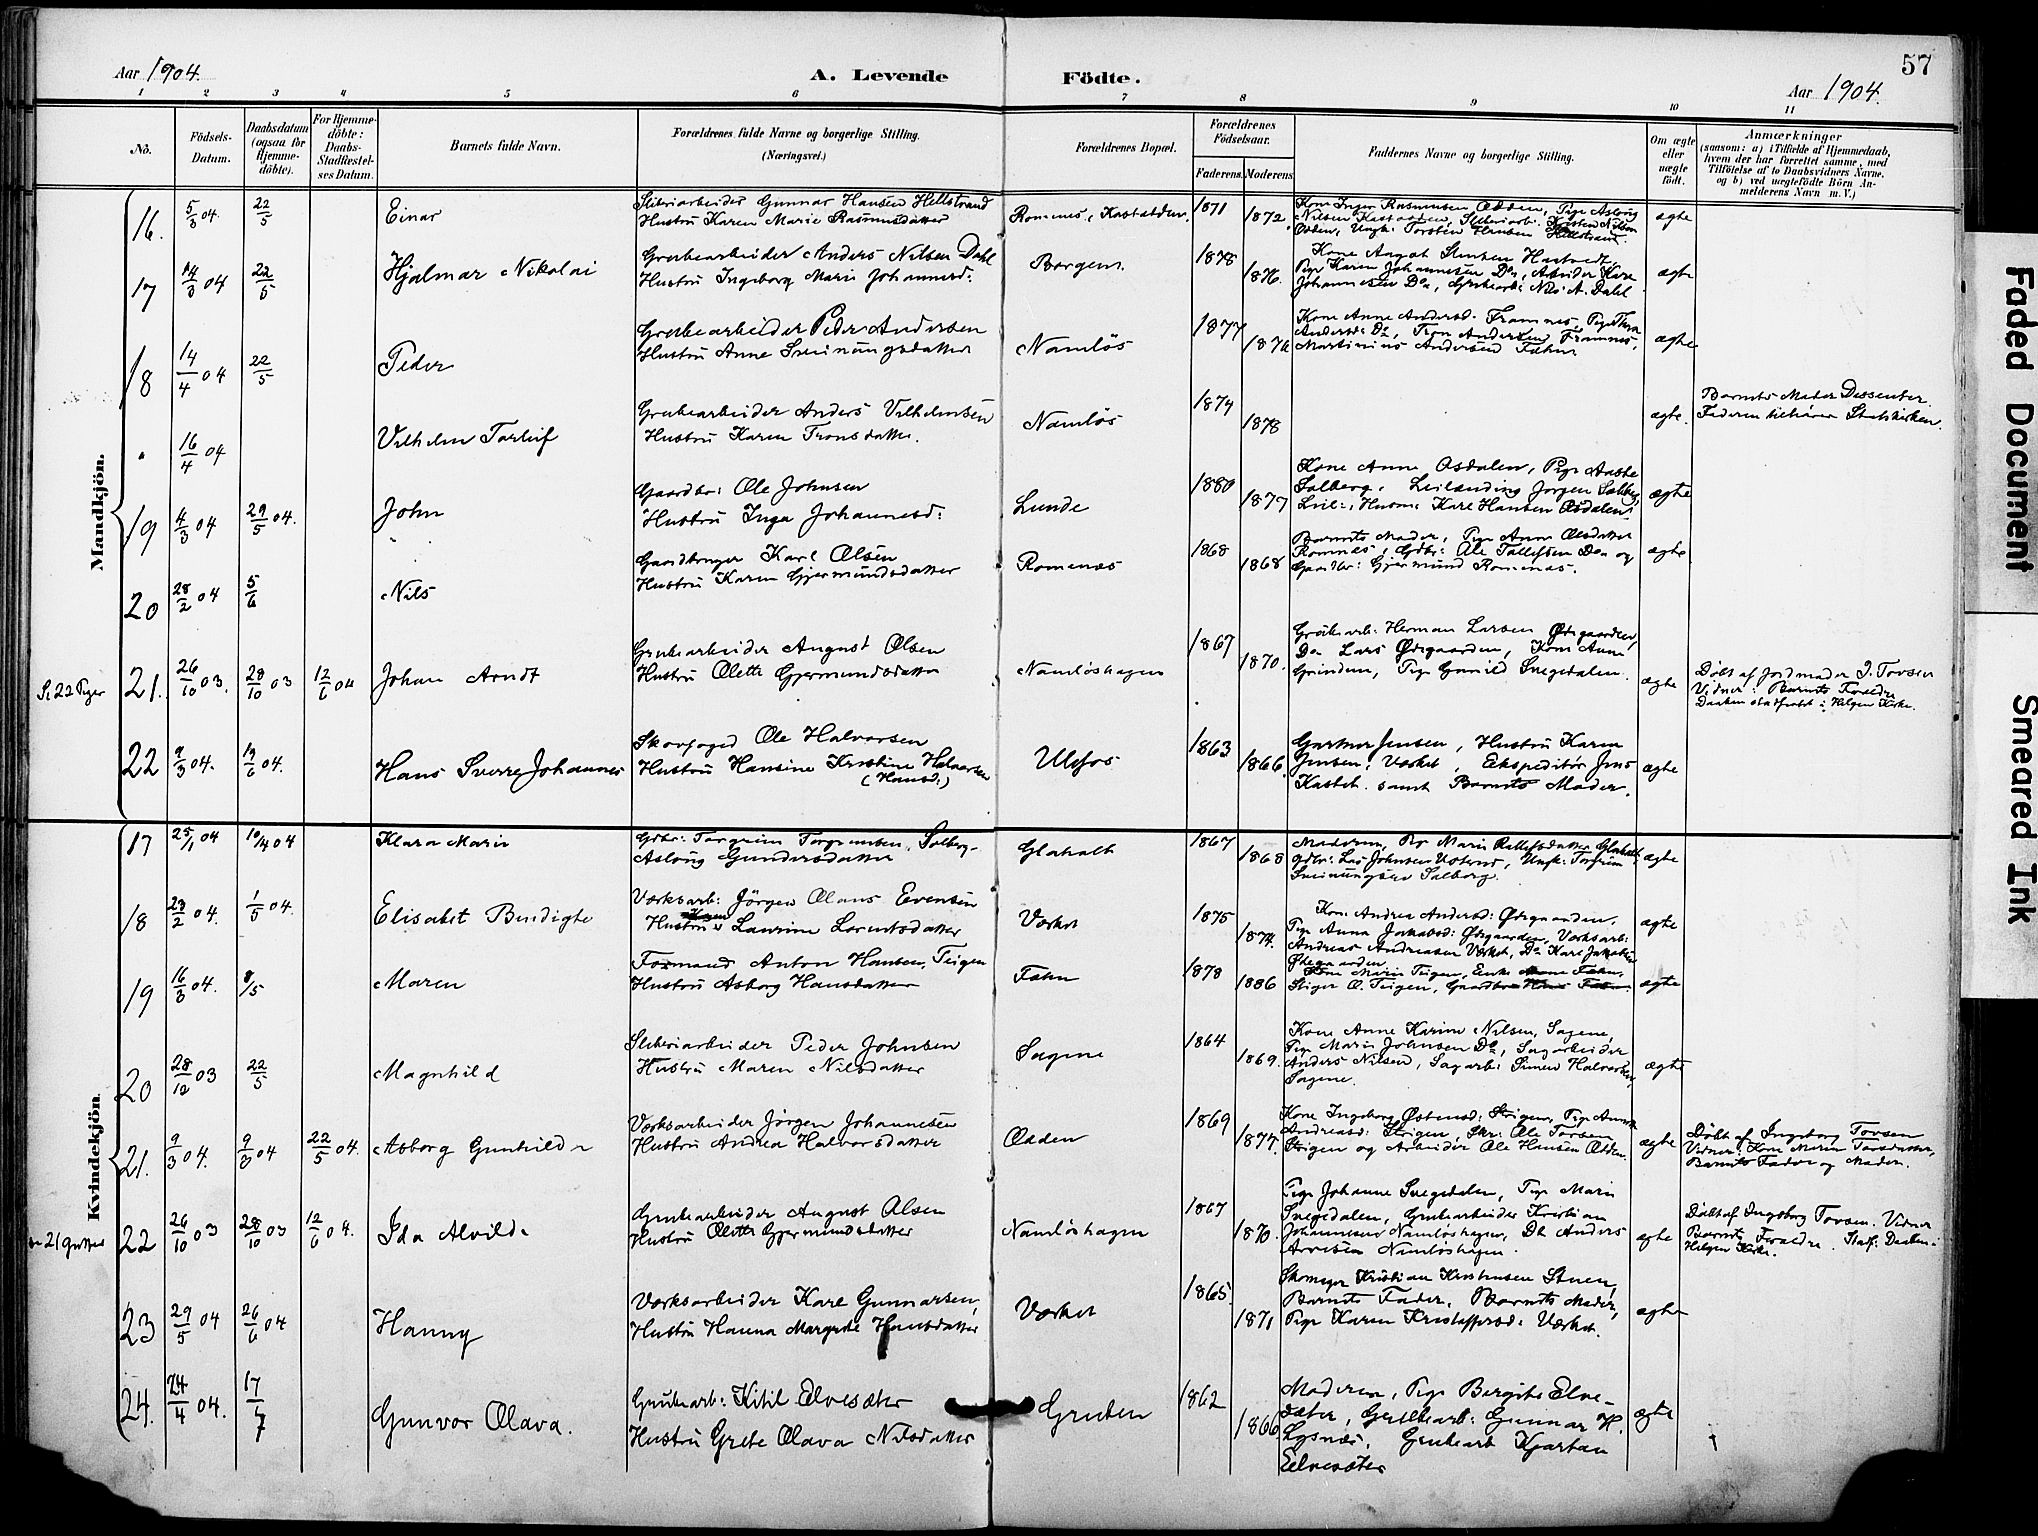 Aar 1904.
A. Levende Födte.
57
Aar 1904.
1 2 3 4 5 6 7 8 9 10 11
No.
Födsels-Datum.
Daabsdatum (ogsaa for Hjemme-döbte).
For Hjemme-döbte: Daabs-Stadfæstel-ses Datum.
Barnets fulde Navn.
Forældrenes fulde Navne og borgerlige Stilling.
(Næringsvei.)
Forældrenes Bopæl.
Forældrenes Födselsaar.
Faderens. Moderens.
Faddernes Navne og borgerlige Stilling.
Om ægte eller uægte födt.
Anmærkninger
(saasom: a) i Tilfælde af Hjemmedaab, hvem der har forrettet samme, med Tilföielse af to Daabsvidners Navne, og b) ved uægtefödte Börn An-melderens Navn m. V.)
Mandkjön.
16. 5/3 04. 22/5 Einar
Sliberiarbeider Gunnar Hansen Hellstrand
Hustru Karen Marie Rasmusdatter
Romnes, Kastadden. 1871 1872.
Kone Inger Rasmussen Odden, Pige Aslaug
ægte
17 14/3 04 22/5 Hjalmar Nikolai
Grubearbeider Anders Nilsen Dahl
Hustru Ingeborg Marie Johannesd:
Borgen. 1878 1876.
Pige Karen Johannesen Do, Arbeider Kare
Johannesen Do, Grubearb: Nils A. Dahl
ægte
18 14/4 04 22/5 Peder
Grubearbeider Peder Andersen
Hustru Anne Sveinungsdatter
Namlös 1877 1876
Kone Anne Andersd. Framnes, Pige Thea
Andersd: Do, Tron Andersen Framnes,
Martinius Andersen Fæhn
ægte
" 16/4 04 Vilhelm Torleif
Grubearbeider Anders Vilhelmsen
Hustru Karen Tronsdatter.
Namlös 1874 1878
ægte.
Barnets Moder Dissenter.
Faderen tilhører Statskirken.
19 4/3 04 29/5 04. John
Gaardbr: Ole Johnsen
Hustru Inga Johannesd:
Lunde 1880 1877
Kone Anne Aasdalen, Pige Aaste
Solberg, Leilænding Jorgen Solberg
ægte
20 28/2 04 5/6 Nils
Gaardbruger Karl Olsen
Hustru Karen Gjermundsdatter
Romenæs 1868 1868
Barnets Moder, Pige Anne Olsdatter
Romnæs, Gdbr: Ole Tollefsen Do og
Gaardbr: Gjermund Romenæs.
ægte
Se 22 Piger
21. 26/10 03. 28/10 03 12/6 04 Johan Arndt
Grubearbeider August Olsen
Hustru Olette Gjermundsdatter
Namløshagen 1867 1870.
Grubearb: Herman Larsen Ødegaarden,
Do Lars Ødegaarden, Kone Anne
Grinden, Pige Gunild Svegedalen.
ægte
Döbt af Jordmoder I. Torsen
Vidner: Barnets Forældre
Daaben stadfæstet i Helgen Kirke.
22 9/3 04. 19/6 04. Hans Sverre Johannes
Skovfoged Ole Halvorsen
Hustru Hansine Kristine Halvorsen
(Hansd:)
Ulefos 1863 1866.
Gartner Jensen, Hustru Karen
Jensen, Værket, Ekspeditör Jens
Kastet. samt Barnets Moder.
ægte
Kvindekjön.
17 25/1 04 10/4 04 Klara Marie
Gdbr: Torgrim Torgrimsen, Solberg-
Aslaug Gundersdatter
Glaholt 1867 1868
Moderen, Pige Marie Rollefsdatter Glaholt,
Sveinungsen Solberg.
ægte
18 23/2 04. 1/5 04. Elisabet Bendigte
Værksarb: Jörgen Olaus Evensen
Hustru Karen Laurine Lorentsdatter
Værket 1875 1874.
Kone Andrea Andersd: Ødegaarden,
Pige Anna Jakobsd: Ødegaarden, Værksarb:
Andreas Andreasen Værket, Do Karl Jakobsen
Ødegaarden
ægte
19 16/3 04. 8/5 Maren
Formand Anton Hansen, Teigen
Hustru Asborg Hansdatter
Fæhn 1878 1886
Kone Maren Teigen, Enke Anne Fæhn,
Stiger O. Teigen, Gaardbr Hans Fæhn
ægte
20 28/12 03 22/5 Magnhild
Sliberiarbeider Peder Johnsen
Hustru Maren Nilsdatter
Sagene 1864 1869.
Kone Anne Karine Nilsen, Sagene,
Pige Marie Johnsen Do, Sagarbeider
Anders Nilsen, Sagarb: Simen Halvorsen,
Sagene.
ægte
21. 9/3 04. 9/3 04 22/5 04. Asborg Gunhilde
Værksarbeider Jörgen Johannesen
Hustru Andrea Halvorsdatter
Odden 1869 1877.
Kone Ingeborg Østensd: Strigen, Pige Anne
Andreasd: Strigen, Skr: Ole Torsen
Strigen og Arbeider Ole Hansen Odden.
ægte
Döbt af Ingeborg Torsen
Vidner: Kone Maren Torsdatter,
Barnets Fader og Moder.
se 21 Gutter
22 26/10 03 28/10 03 12/6 04. Ida Alvilde
Grubearbeider August Olsen
Hustru Olette Gjermundsdatter
Namløshagen 1867 1870.
Pige Johanne Svegedalen, Pige Marie
Svegedalen, Grubearbeider Kristian
Johannesen Namløshagen, Do Anders
Arvesen Namløshagen.
ægte
Döbt af Ingeborg Torsen. Vidner
Barnets Forældre. Stadf: Daaben i
Helgen Kirke.
23 29/5 04 26/6 04 Hanny
Værksarbeider Karl Gunnarsen,
Hustru Hanna Margrete Hansdatter
Værket 1865. 1871
Skomager Kristian Kristensen Stuen,
Barnets Fader, Barnets Moder,
Pige Karen Kristoffersd: Værket.
ægte
24. 24/4 04. 17/7 Gunvor Olava.
Grubearb: Kitil Elvesæter
Hustru Grete Olava Nilsdatter
Gruben 1862 1866
Moderen, Pige Birgite Elve-
sæter, Grubearb: Gunnar H.
Lysnæs, Grubearb Kjartan
Elvesæter
ægte
Faded Document
Smeared Ink